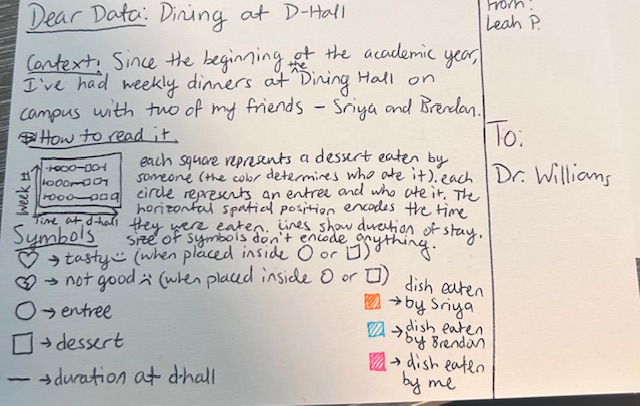 Dear Data: Dining at D-Hall
Context: Since the beginning of the academic year,
I've had weekly dinners at the Dining Hall on
campus with two of my friends - Sriya and Brendan.
How to read it
Week #
Time at d-hall
each square represents a dessert eaten by
someone (the color determines who ate it). each
circle represents an entree and who ate it. The
horizontal spatial position encodes the time
they were eaten. Lines show duration of stay.
size of symbols don't encode anything.
Symbols
♡ → tasty :) (when placed inside ○ or □)
→ not good :( (when placed inside ○ or □)
○ → entree
□ → dessert
— → duration at d-hall
→ dish eaten
by Sriya
→ dish eaten
by Brendan
→ dish eaten
by me
From:
Leah P.
To:
Dr. Williams